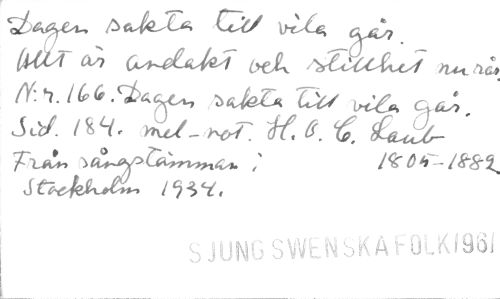 Dagen sakta till vila går.
Allt är andakt och stillhet nu rår.
N:r. 166. Dagen sakta till vila går.
Sid. 184. mel-not. H. O. C. Laub
Från sångstämman i 1805-1882
Stockholm 1934.
SJUNG SWENSKA FOLK/1961